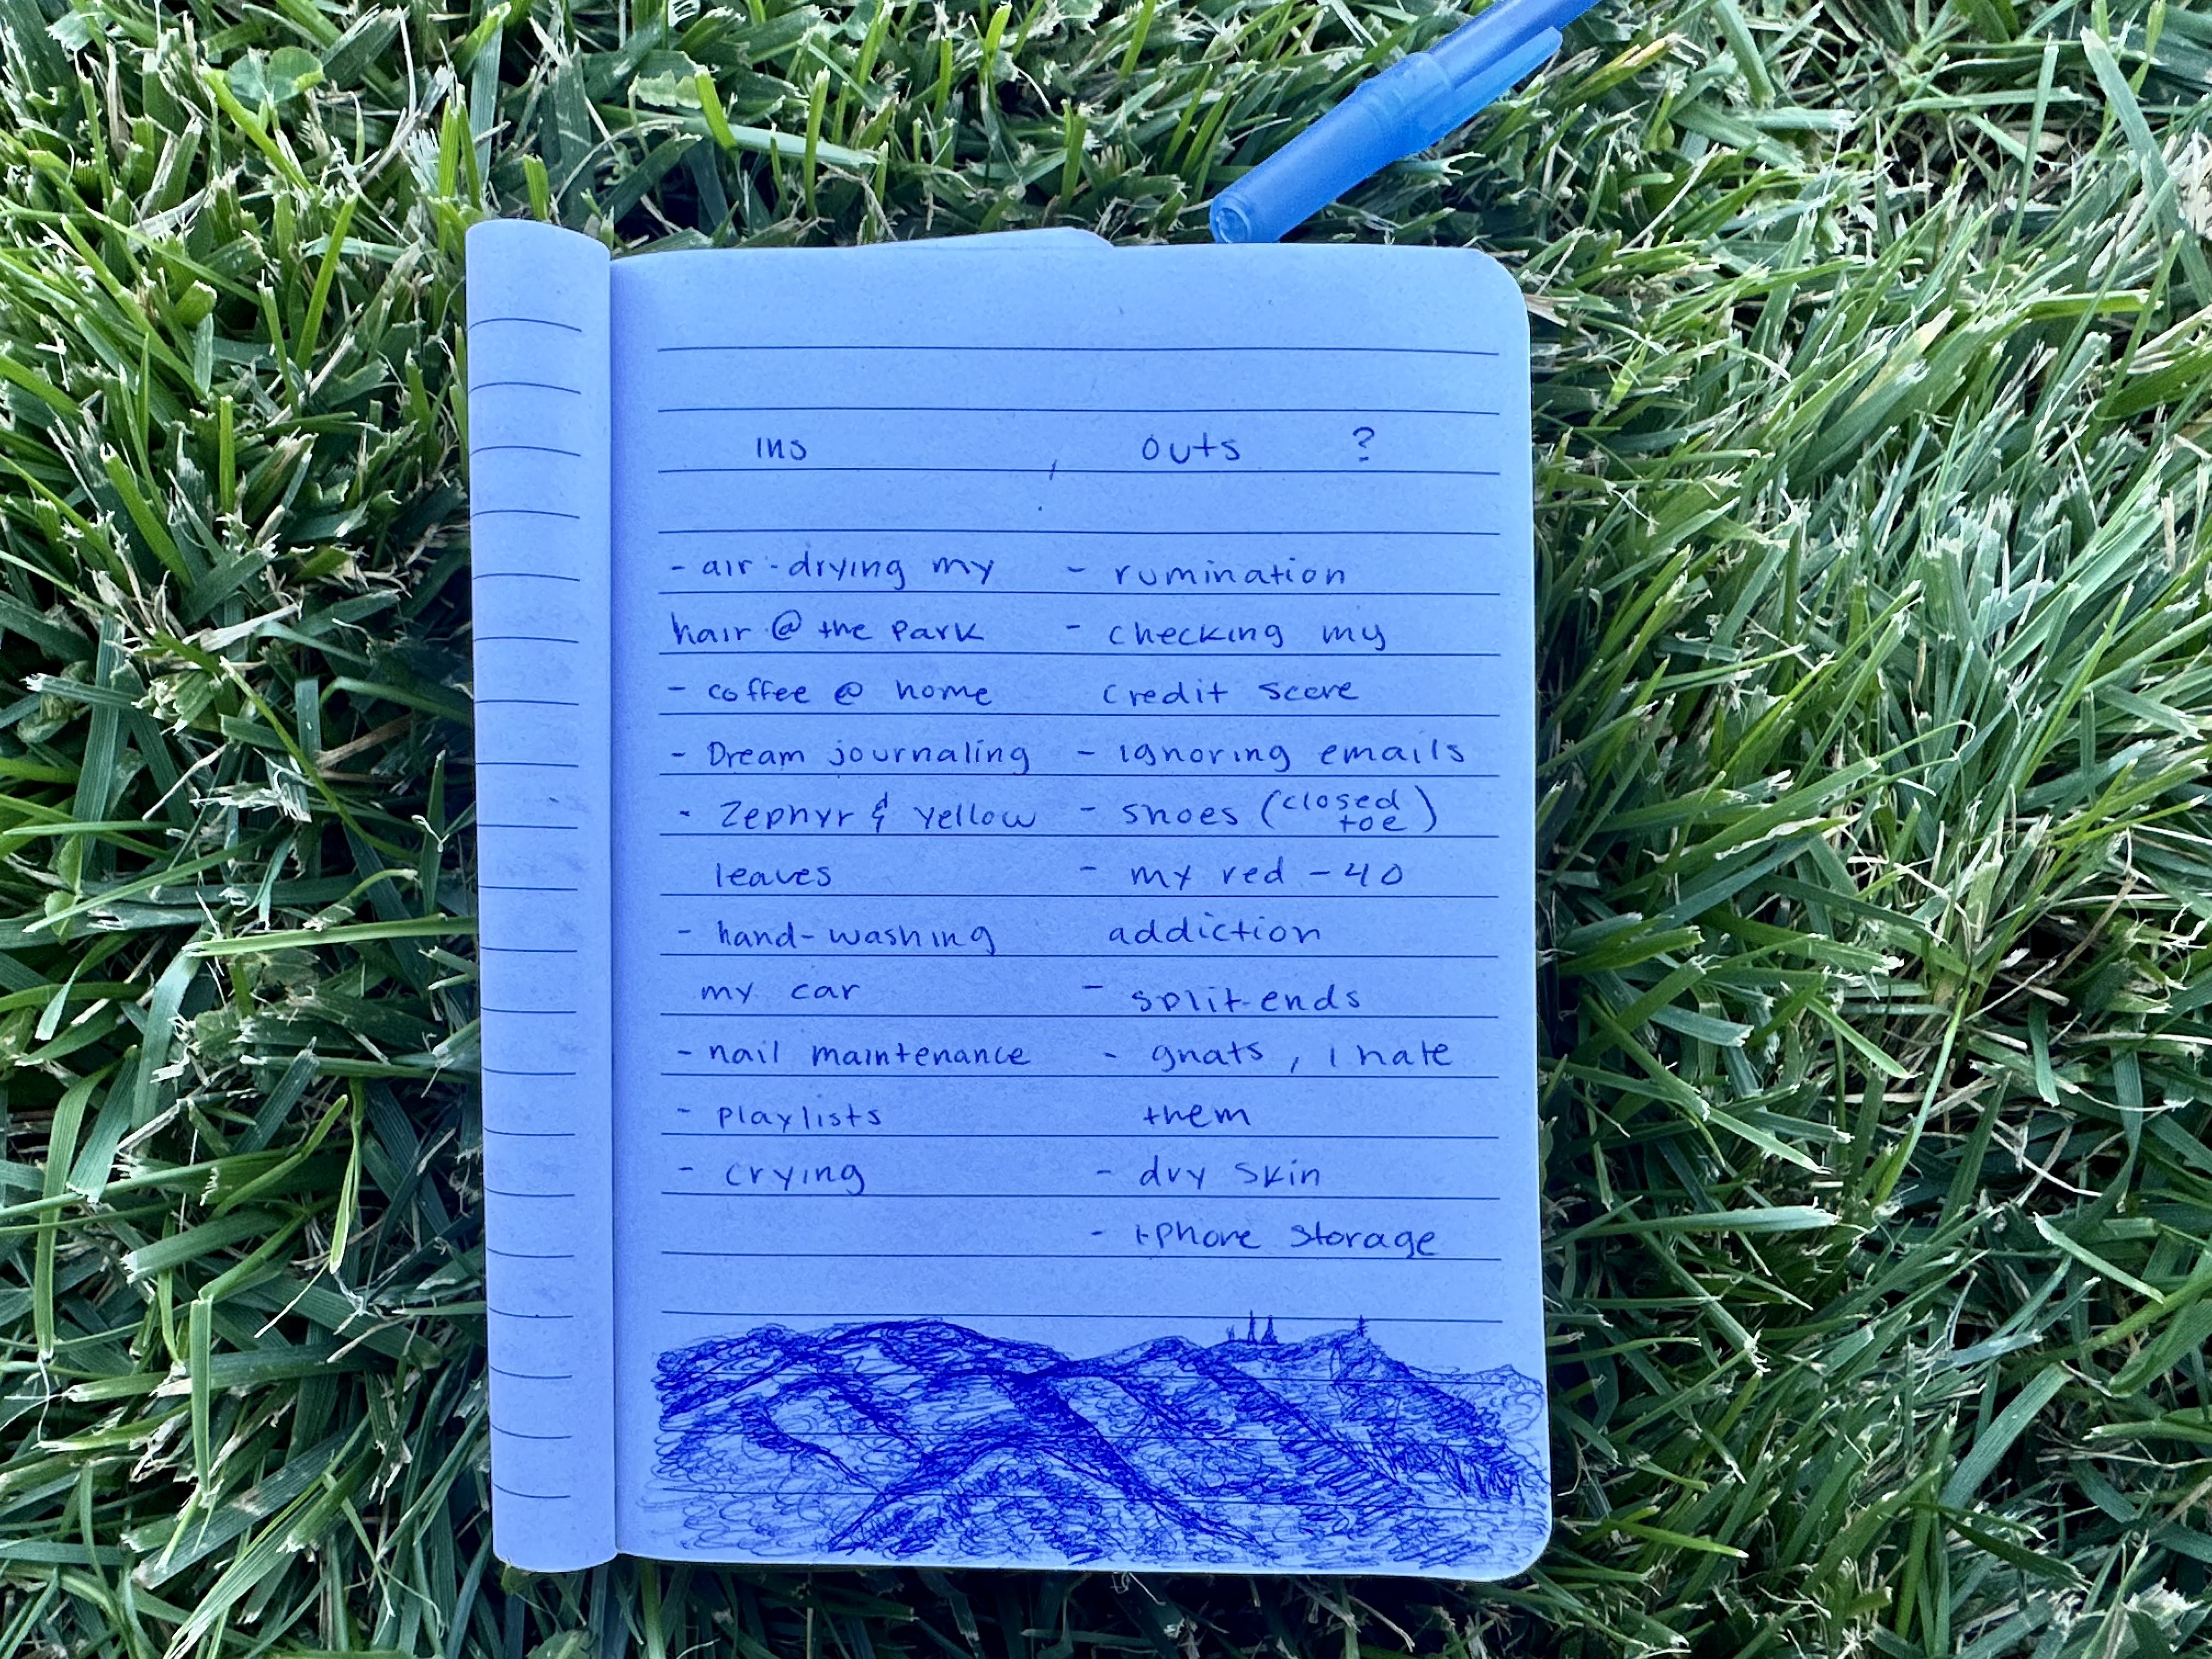 ins outs ?
- air-drying my
hair @ the park
- coffee @ home
- Dream journaling
- Zephyr & yellow
leaves
- hand-washing
my car
- nail maintenance
- playlists
- crying
- rumination
- checking my
credit score
- ignoring emails
- shoes (closed
toe)
- my red-40
addiction
- split-ends
- gnats, i hate
them
- dry skin
- iphone storage